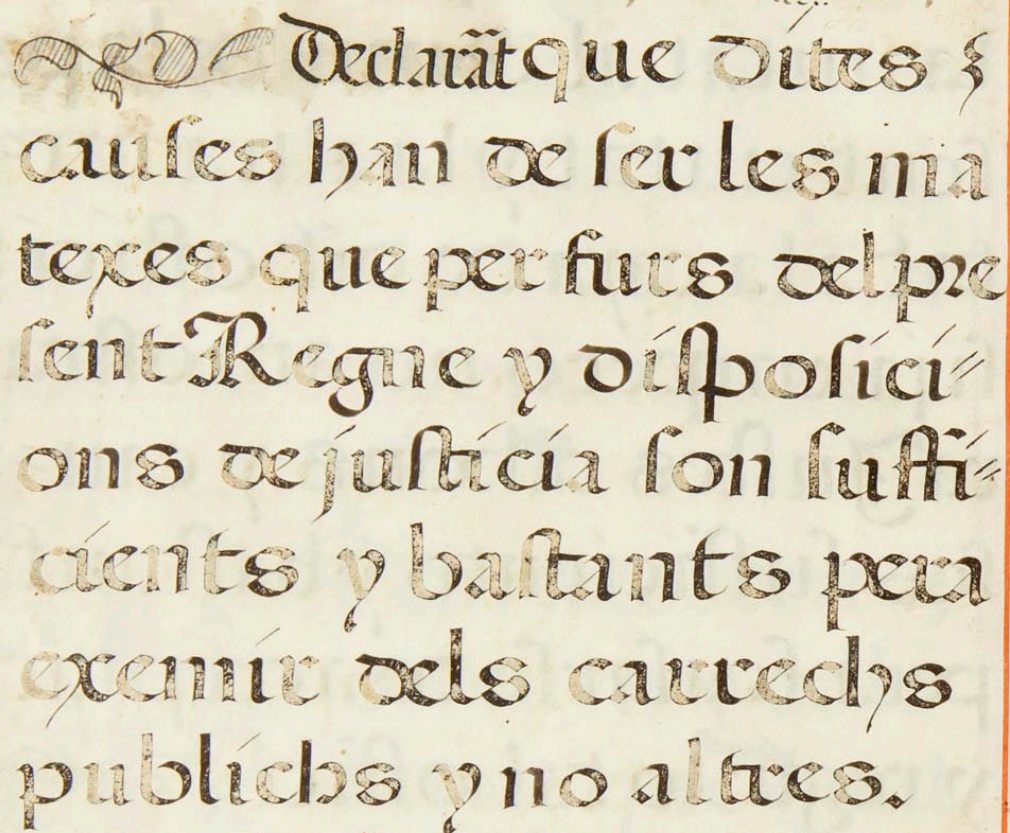 Declarãt que dites
causes han de ser les ma
texes que per furs del pre
sent Regne y disposici⸗
ons de justicia son suffi⸗
cients y bastants pera
exemir dels carrechs
publichs y no altres.